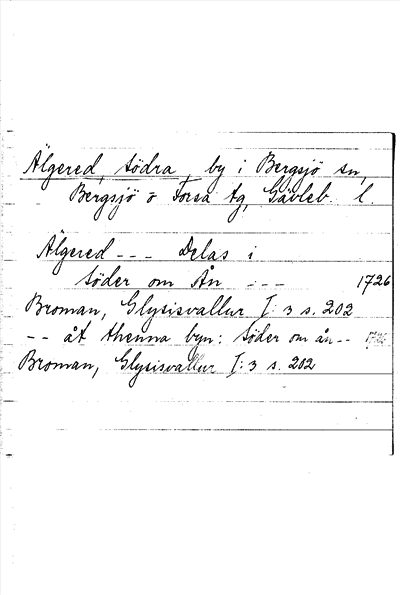 Älgered, södra, by i Bergsjö sn,
Bergsjö o Forsa tg, Gävleb. l.
Älgered --- Delas i
söder om Ån --- 1726
Broman, Glysisvallur I: 3 s. 202
-- åt thenna byn: söder om ån -- 1726
Broman, Glysisvallur I: 3 s. 202